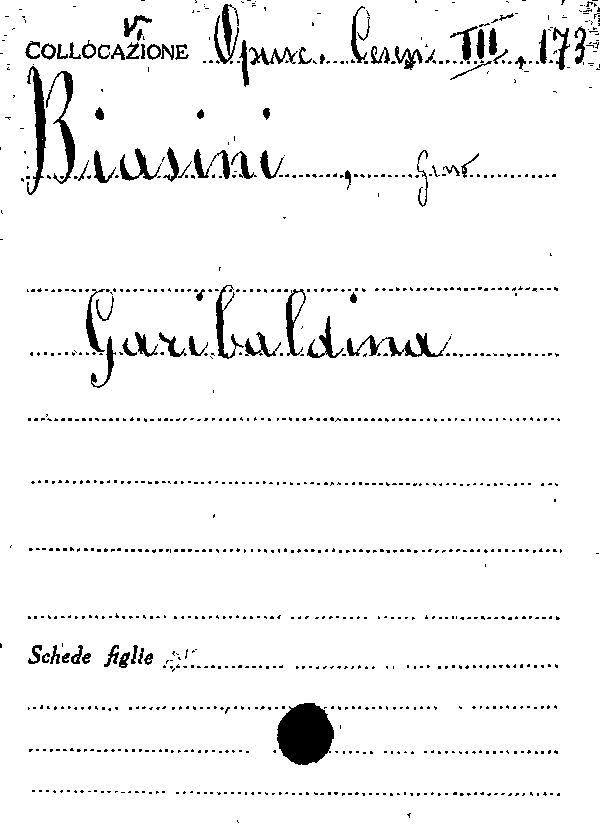 COLLOCAZIONE Opusc. Cesen. III, 173
Biasini, Gino
Garibaldina
Schede figlie